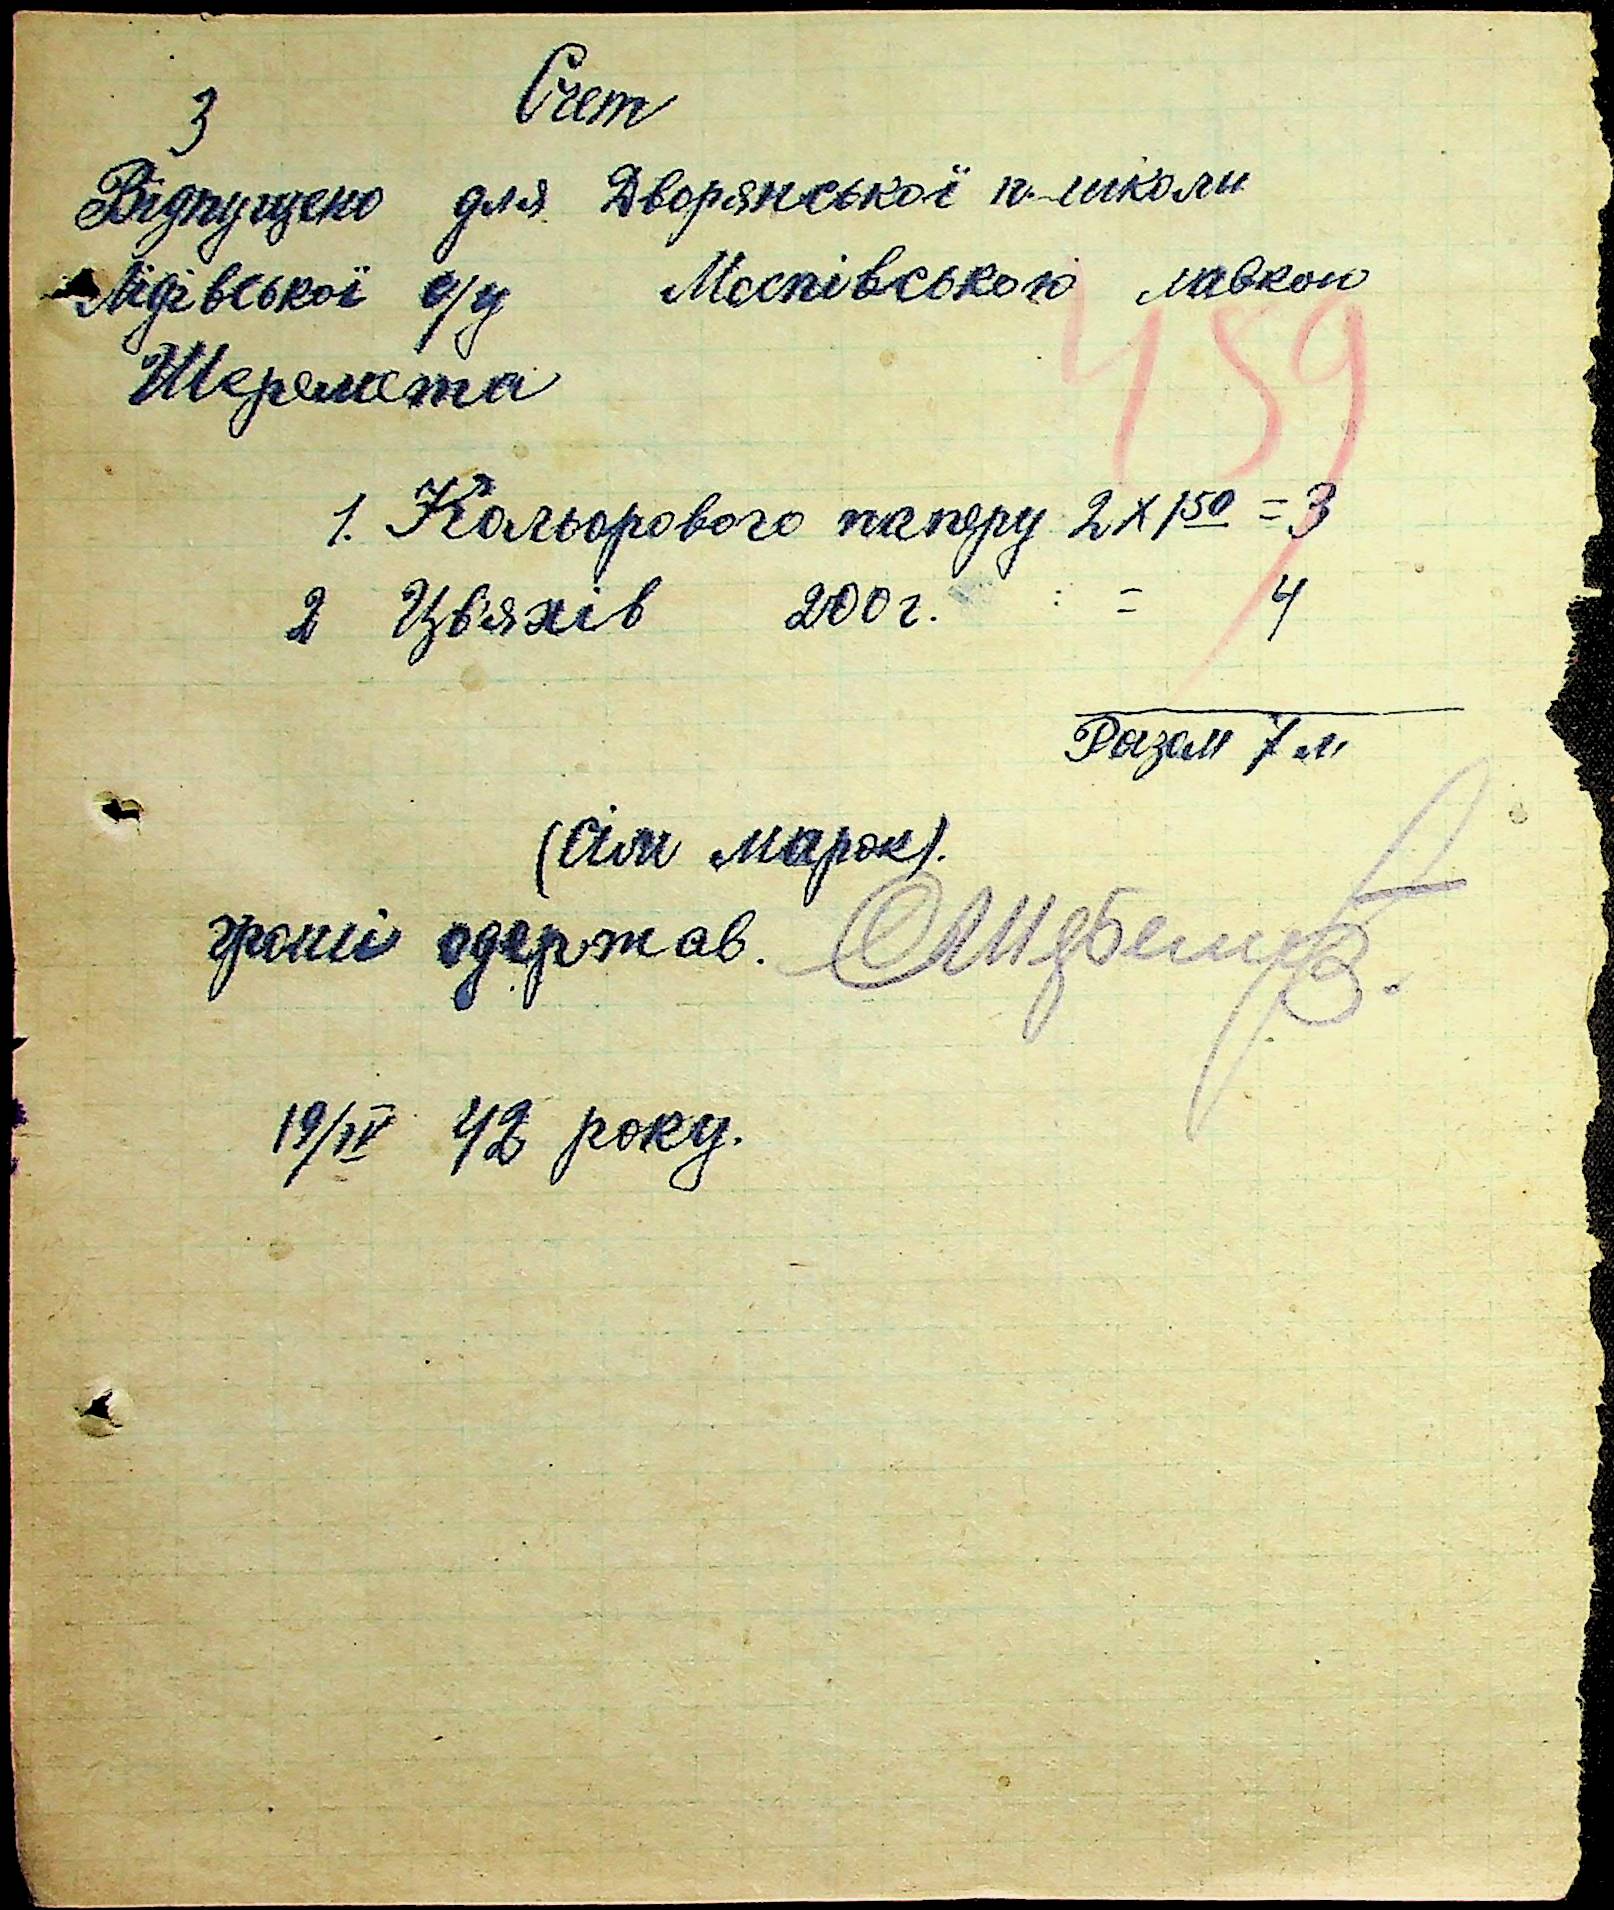 3 Счет
Відпущено для Дворянської п.-школи
Лідівської с/у Моспівською лавкою
Шеремета
459
1. Кольорового паперу 2 х 1 50 = 3
2 Цвяхів 200 г. : = 4
Разом 7 м
(Сім марок).
гроші одержав.
19/IV 42 року.